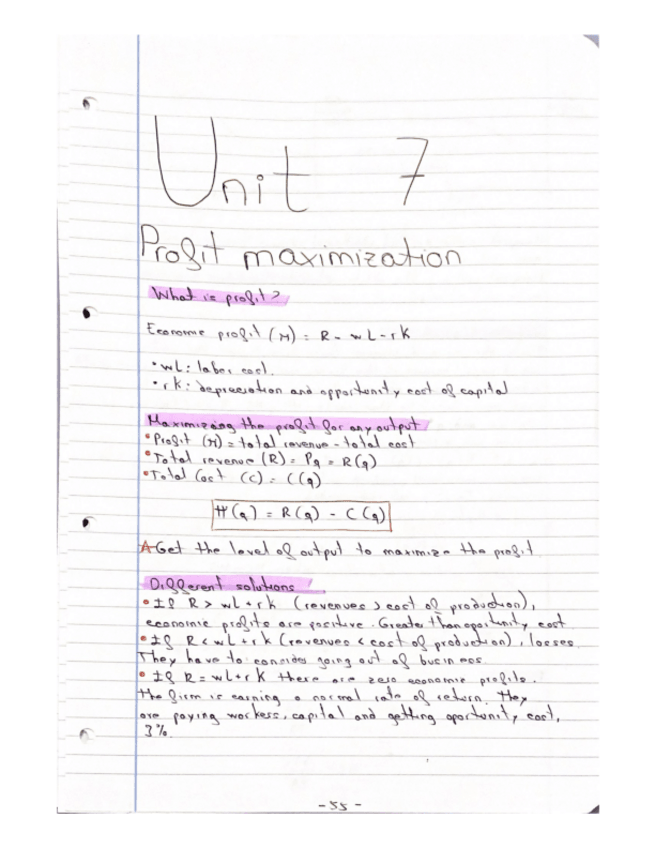 Unit 7
Profit maximization
What is profit?
Economic profit (π) = R - wL - rK
• wL: labor cost.
• rK: depreciation and opportunity cost of capital
Maximizing the profit for any output
• Profit (π) = total revenue - total cost
• Total revenue (R) = Pq = R(q)
• Total Cost (C) = C(q)
π(q) = R(q) - C(q)
Get the level of output to maximize the profit
Different solutions
• If R > wL + rK (revenues > cost of production),
economic profits are positive. Greater than oportunity cost
• If R < wL + rK (revenues < cost of production), losses.
They have to consider going out of business
• If R = wL + rK there are zero economic profits.
the firm is earning a normal rate of return. They
are paying workers, capital and getting oportunity cost,
3%.
- 55 -